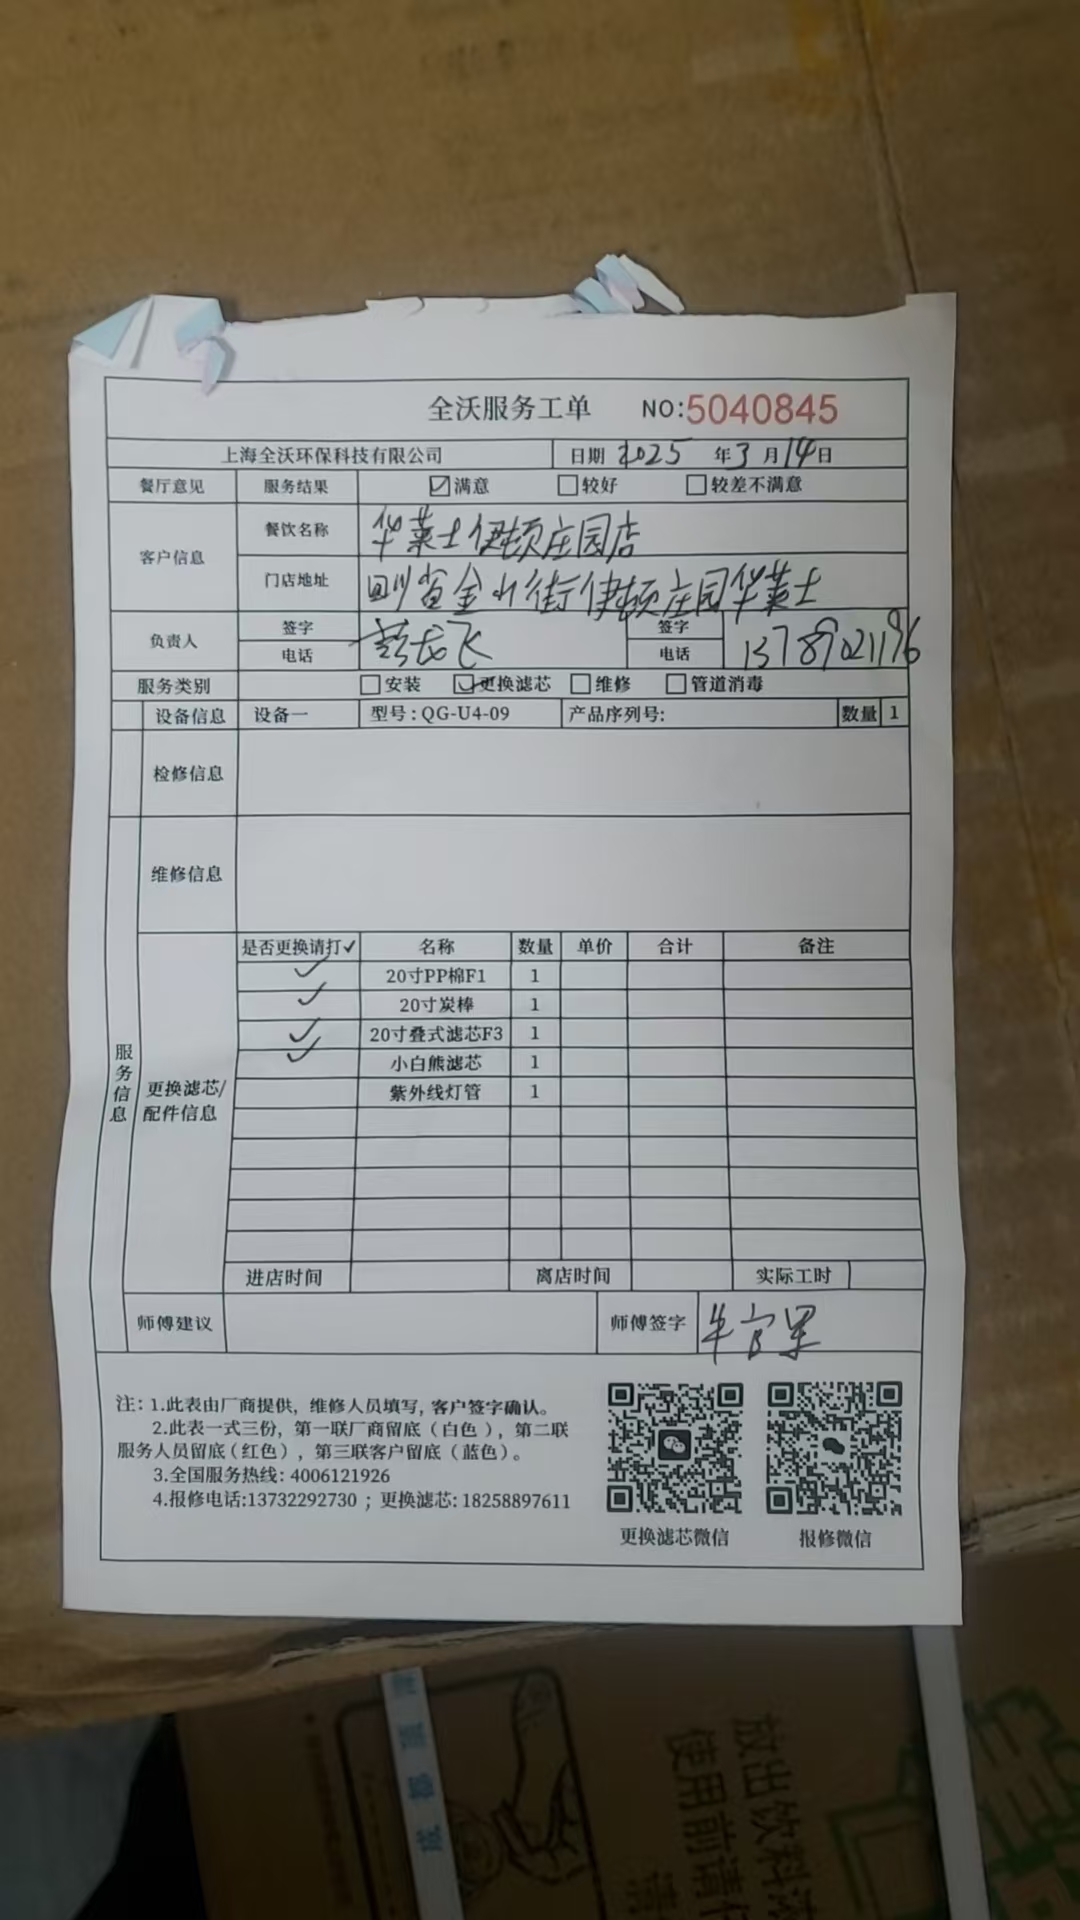 全沃服务工单 NO:5040845
上海全沃环保科技有限公司 日期 2025 年 3 月 14 日
餐厅意见 服务结果 ☑满意 □较好 □较差不满意
客户信息 餐饮名称 华莱士伊顿庄园店
门店地址 四川省金水街伊顿庄园华莱士
负责人 签字 彭龙飞 签字
电话 电话 13789021196
服务类别 □安装 ☑更换滤芯 □维修 □管道消毒
设备信息 设备一 型号:QG-U4-09 产品序列号: 数量 1
检修信息
维修信息
服务信息
更换滤芯/配件信息
是否更换请打✓ 名称 数量 单价 合计 备注
✓ 20寸PP棉F1 1
✓ 20寸炭棒 1
✓ 20寸叠式滤芯F3 1
✓ 小白熊滤芯 1
紫外线灯管 1
进店时间 离店时间 实际工时
师傅建议 师傅签字
注:1.此表由厂商提供,维修人员填写,客户签字确认。
2.此表一式三份,第一联厂商留底(白色),第二联
服务人员留底(红色),第三联客户留底(蓝色)。
3.全国服务热线:4006121926
4.报修电话:13732292730;更换滤芯:18258897611
更换滤芯微信 报修微信
放出饮料
使用前请